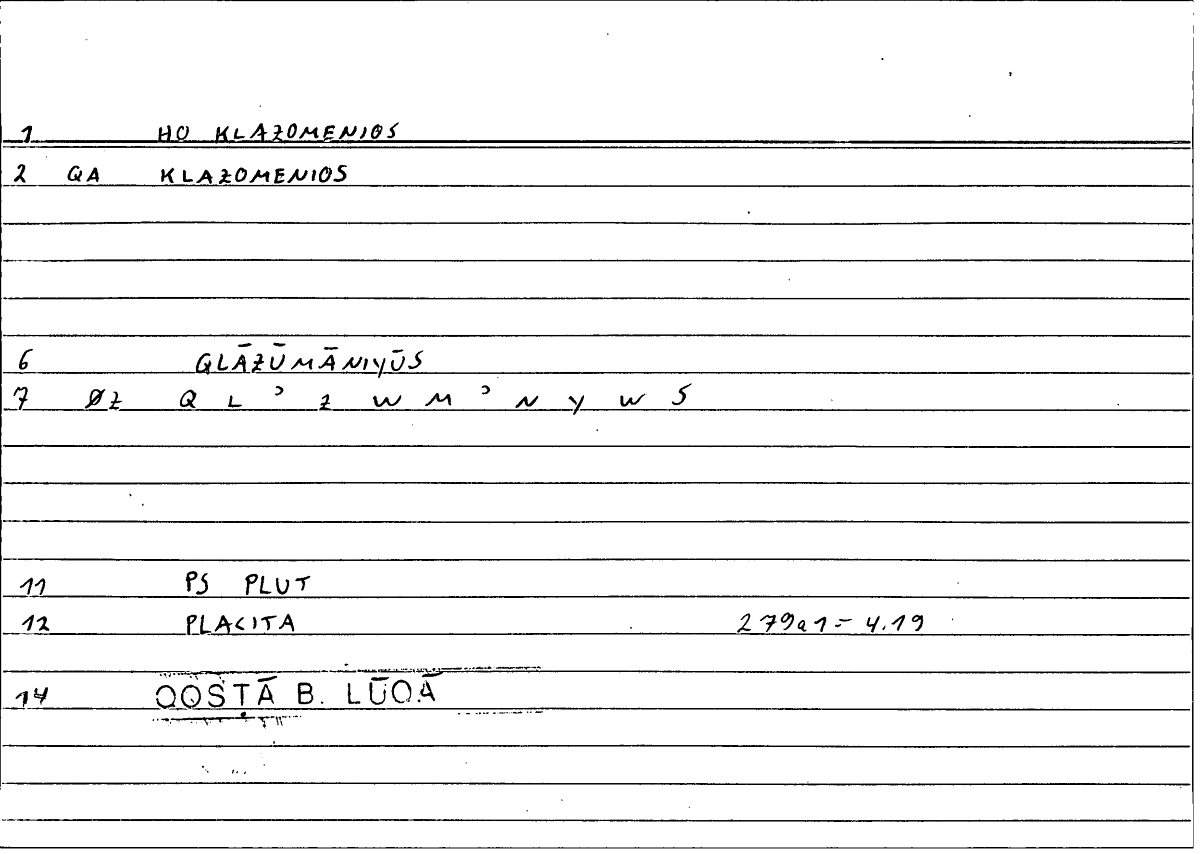 1 HO KLAZOMENIOS
2 QA KLAZOMENIOS
6 QLĀZŪMĀNIYŪS
7 ØZ Q L ʾ Z W M ʾ N Y W S
11 PS PLUT
12 PLACITA 279a1 = 4.19
14 QOSṬĀ B. LŪQĀ